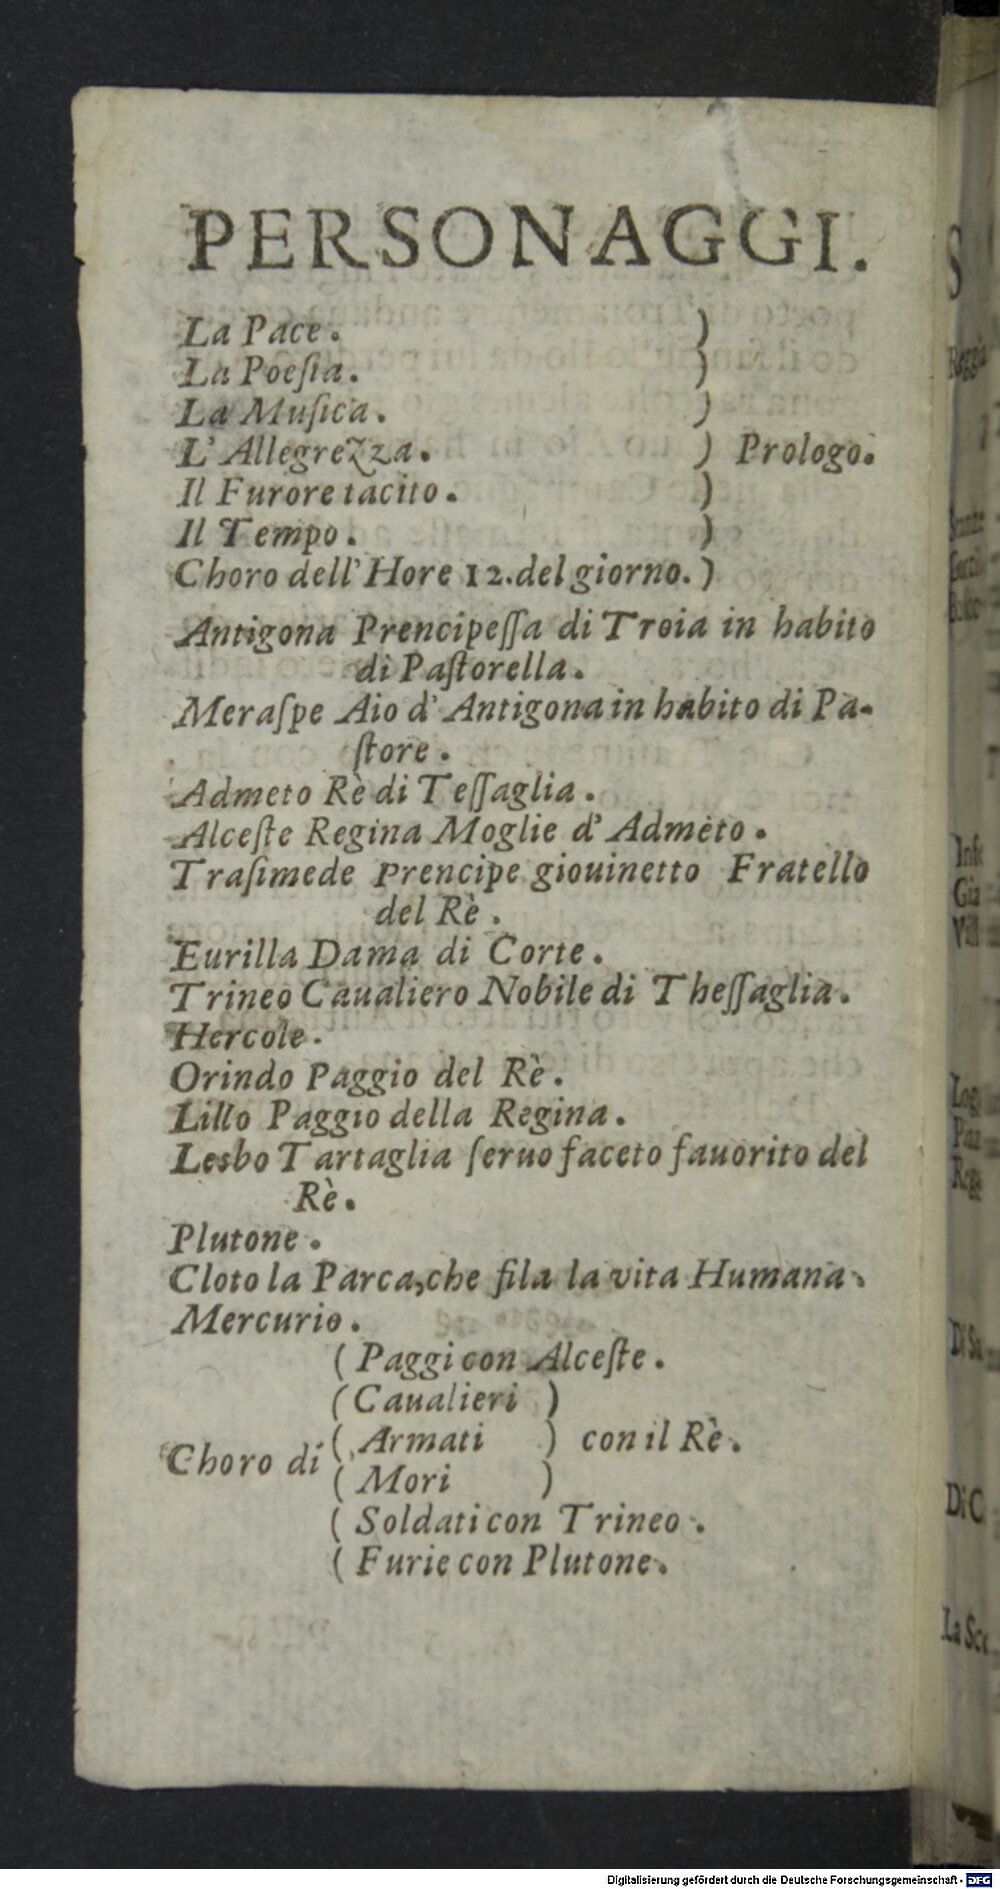 PERSONAGGI.
La Pace. )
La Poeſia. )
La Muſica. )
L' Allegrezza. ) Prologo.
Il Furore tacito. )
Il Tempo. )
Choro dell' Hore 12. del giorno. )
Antigona Prencipeſſa di Troia in habito
di Paſtorella.
Meraſpe Aio d' Antigona in habito di Pa-
ſtore.
Admeto Rè di Teſſaglia.
Alceſte Regina Moglie d' Admeto.
Traſimede Prencipe giouinetto Fratello
del Rè.
Eurilla Dama di Corte.
Trineo Caualiero Nobile di Theſſaglia.
Hercole.
Orindo Paggio del Rè.
Lillo Paggio della Regina.
Lesbo Tartaglia ſeruo faceto fauorito del
Rè.
Plutone.
Cloto la Parca, che fila la vita Humana.
Mercurio.
( Paggi con Alceſte.
( Caualieri )
( Armati ) con il Rè.
Choro di
( Mori )
( Soldati con Trineo.
( Furie con Plutone.
Digitalisierung gefördert durch die Deutsche Forschungsgemeinschaft - DFG